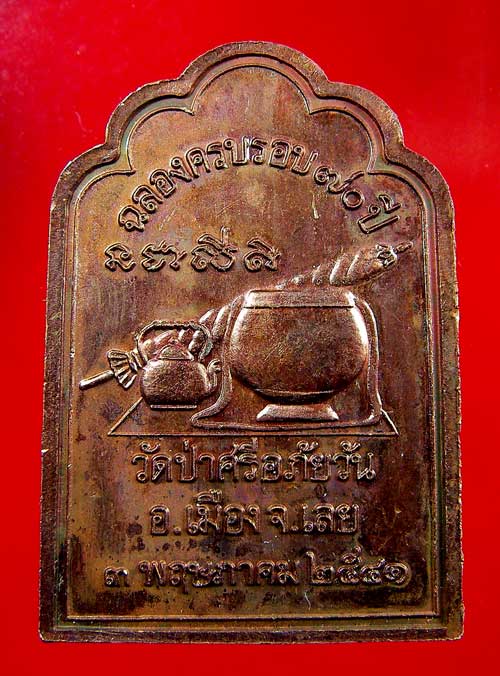 ฉลองครบรอบ ๗๐ ปี
วัดป่าศรีอภัยวัน
อ.เมือง จ.เลย
๓ พฤษภาคม ๒๕๔๑